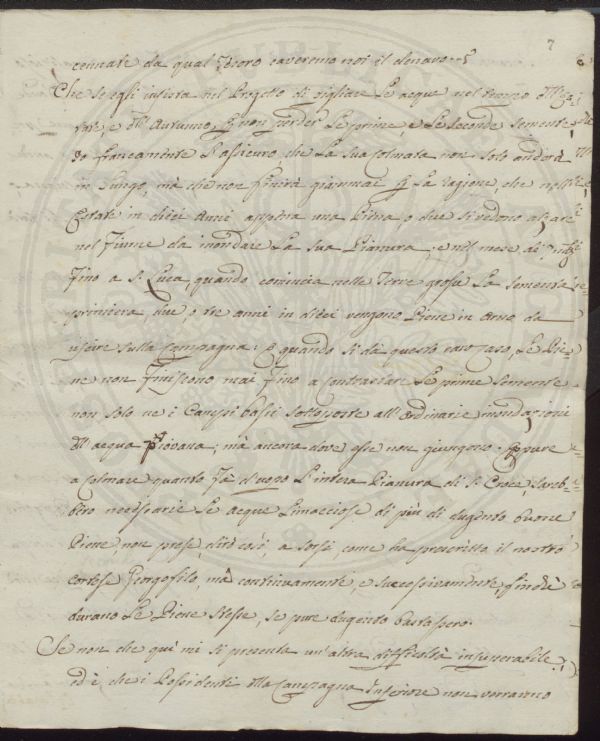 7
cennate da qual Tesoro caveremo noi il denaro?
Che se egli insista nel Progetto di pigliare Le acque nel tempo dell' Esta-
te, e dell' Autunno, per non perder Le prime, e Le seconde semente
Io francamente L'assicuro, che La sua colmata non solo anderà
in Lungo, mà che non finirà giammai per La ragione, che nell'
Estate in dieci Anni appena una Piena, o due si vedono alzare
nel Fiume da inondare La sua Pianura; e nel mese di
fino a S. Luca, quando comincia nelle Terre grosse La sementa
primiera, due, o tre anni in dieci vengono Piene in Arno da
uscire sulla Campagna: E quando si dà questo raro caso, Le Pie-
ne non finiscono mai fino a contrastare Le prime Semente
non solo ne i Campi bassi sottoposte all' ordinarie inondazioni
dell' acqua Piovana; mà ancora dove esse non giungono. Eppure
a colmare quanto fà d'uopo L'intera Pianura di S. Croce, sareb-
bero necessarie Le acque Limacciose di più di dugento buone
Piene non prese, dirò così, a sorsi, come ha prescritto il nostro
cortese Georgofilo, mà continuamente, e successivamente, finchè
durano Le Piene stesse, se pure dugento bastassero.
Se non che quì mi si presenta un'altra difficoltà insuperabile;
ed è, che i Possidenti della Campagna Inferiore non vorranno